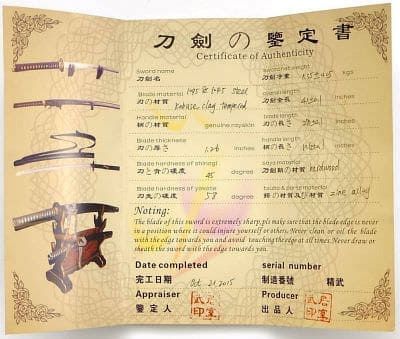 刀劍の鑒定書
Certificate of Authenticity
Sword name
刀劍名
Sword net weight
刀劍净重 kgs
Blade material steel
刃の材質 Kobuse, clay tempered
overall length
刀劍全長 inches
Handle material
柄の材質 genuine,rayskin
Blade length
刃の長さ inches
Blade thickness
刃の厚さ 1.26 inches
handle length
柄の長さ inches
Blade hardness of shinogi
刀と青の硬度 45 degree
saya material
刀劍鞘の材質
Blade hardness of yakote
刃先の硬度 58 degree
tsuba & parts material
zinc alloy
Noting:
The blade of this sword is extremely sharp.pls maky sure that the blade edge is never
in a position where it could injure yourself et others.Never clean or oil the blade
with the edge towards you and avoid touching the edge at all times.Never draw or
sheath the sword with the edge towards you.
Date completed serial number
完工日期 Oct. 21 2015 制造番號 精武
Appraiser Producer
鑒定人 出品人